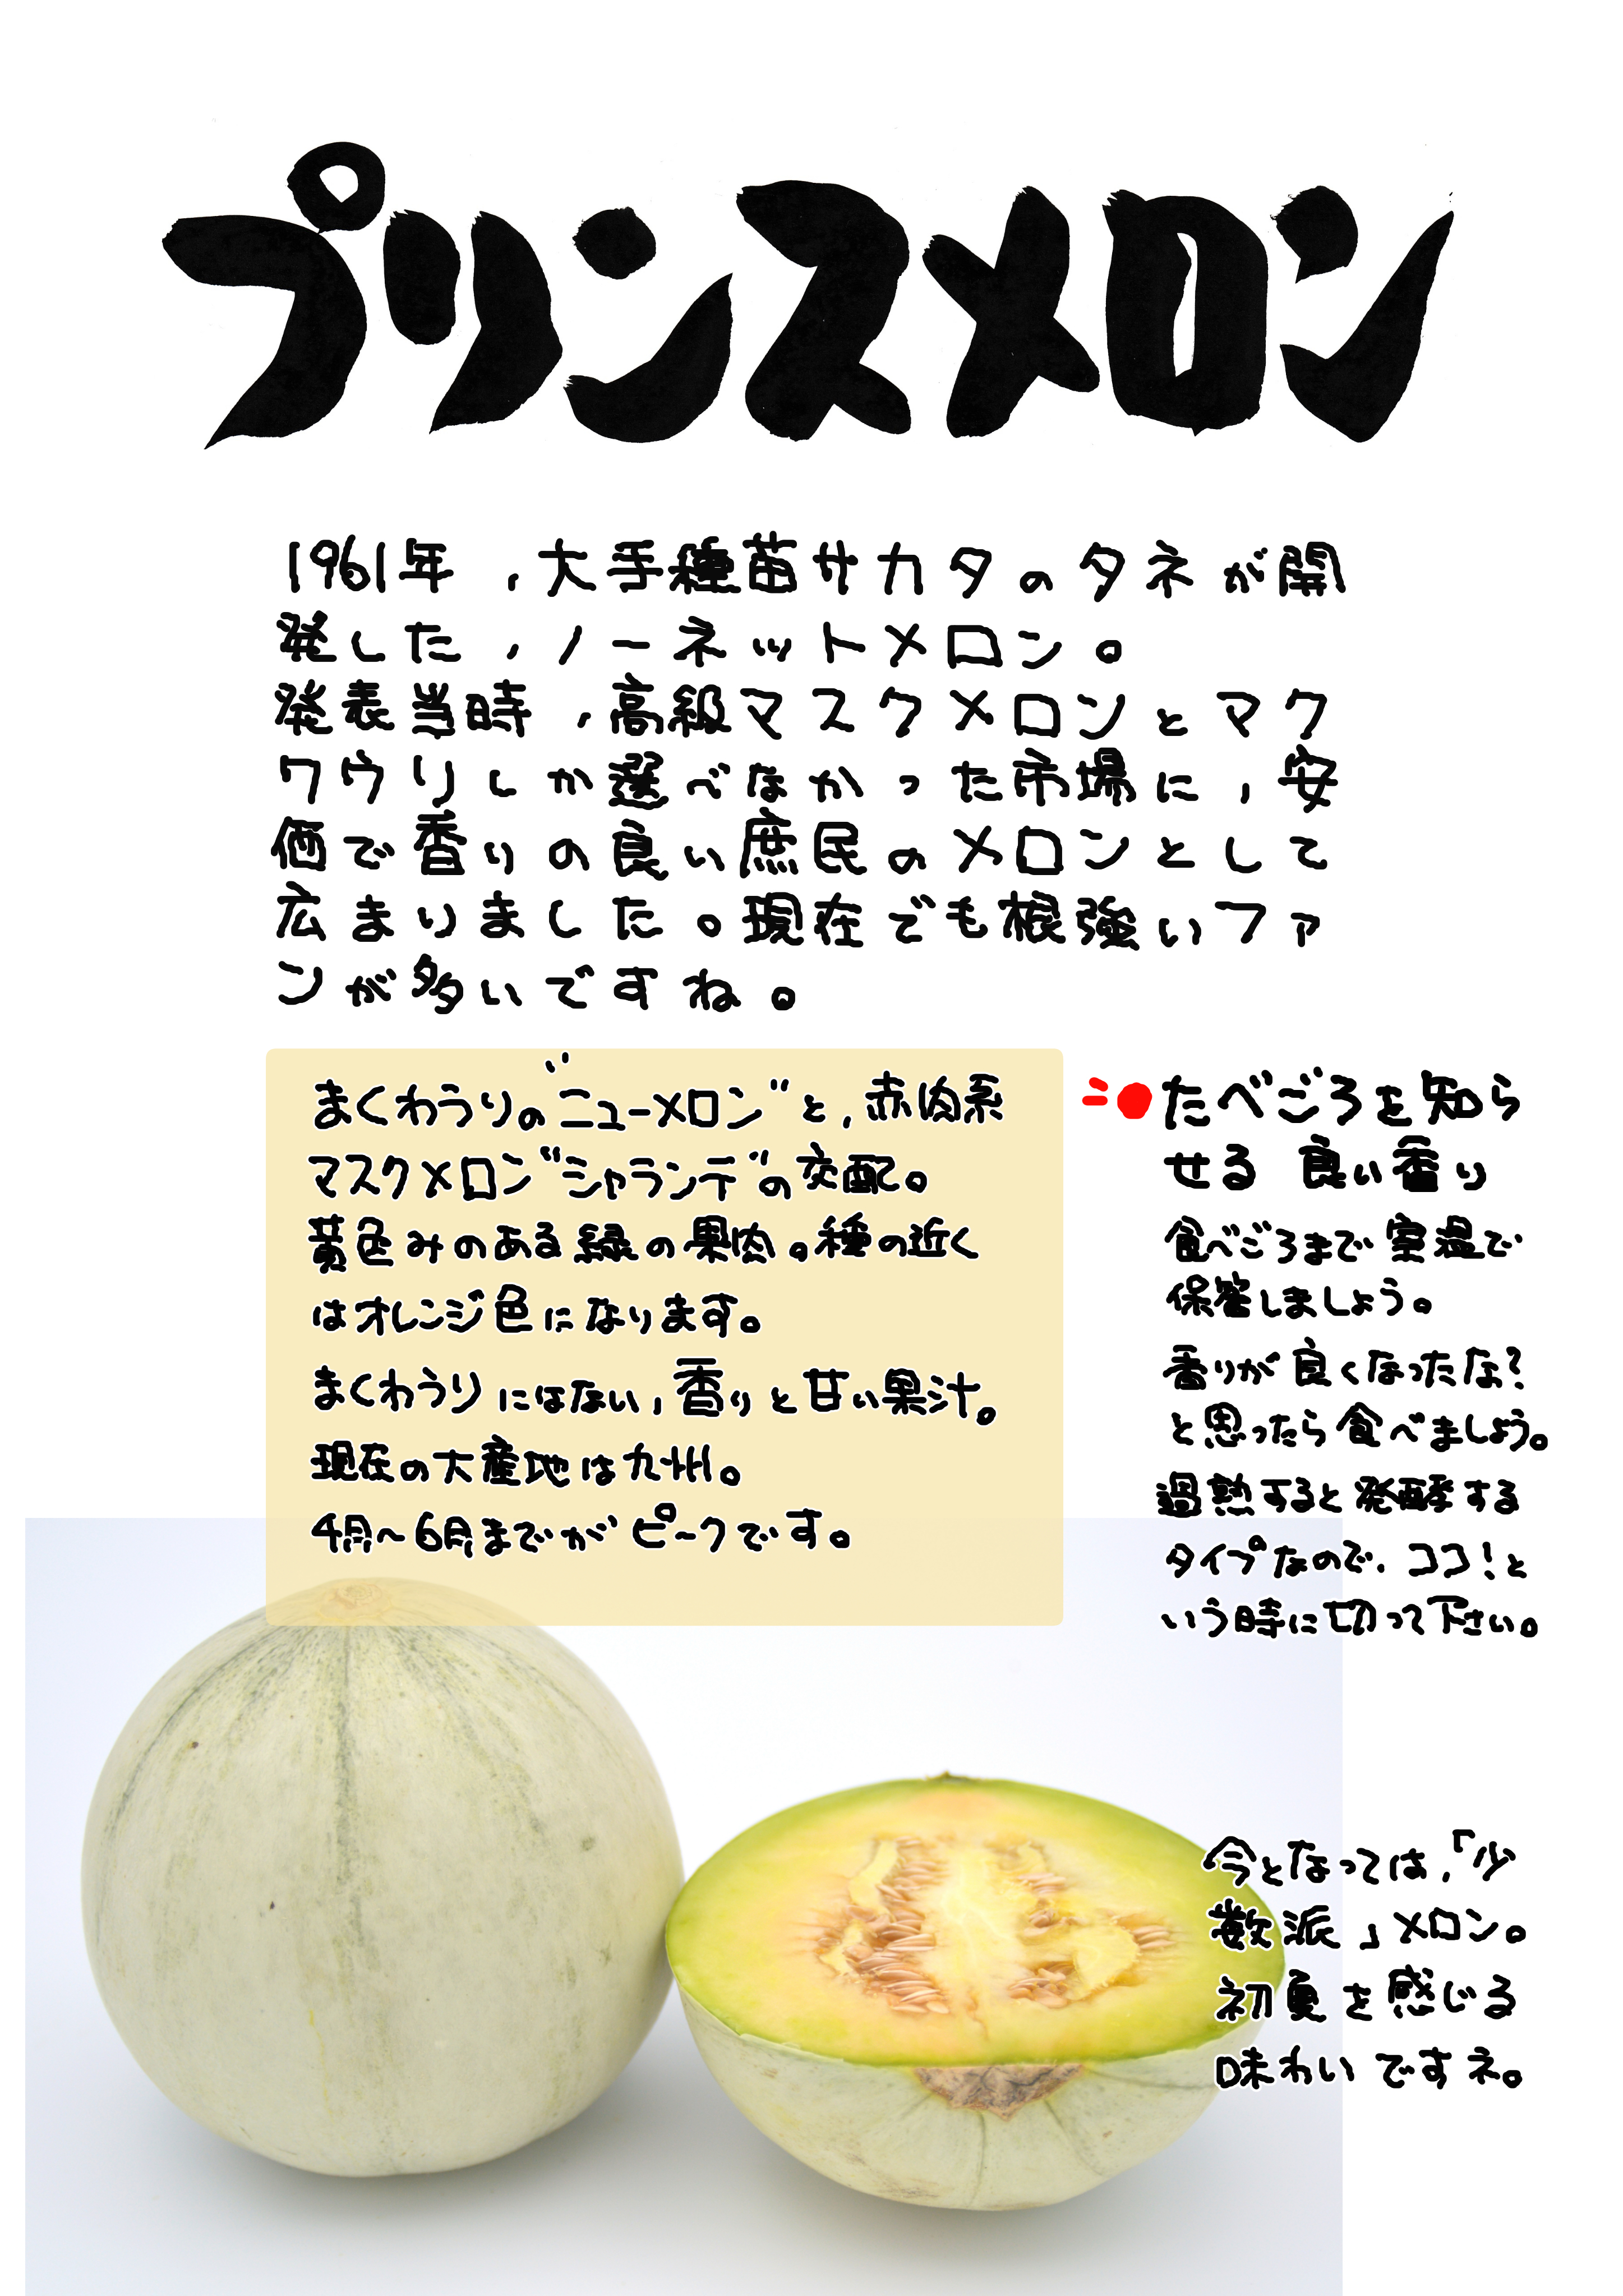 プリンスメロン
1961年,大手種苗サカタのタネが開
発した,ノーネットメロン。
発表当時,高級マスクメロンとマク
ワウリしか選べなかった市場に,安
価で香りの良い庶民のメロンとして
広まりました。現在でも根強いファ
ンが多いですね。
まくわうりの"ニューメロン"と,赤肉系
マスクメロン"シャランテ"の交配。
黄色みのある緑の果肉。種の近く
はオレンジ色になります。
まくわうりにはない,香りと甘い果汁。
現在の大産地は九州。
4月~6月までがピークです。
たべごろを知ら
せる 良い香り
食べごろまで室温で
保管しましょう。
香りが良くなったな?
と思ったら食べましょう。
過熟すると発酵する
タイプなので、ココ!と
いう時に切って下さい。
今となっては,「少
数派」メロン。
初夏を感じる
味わいですネ。